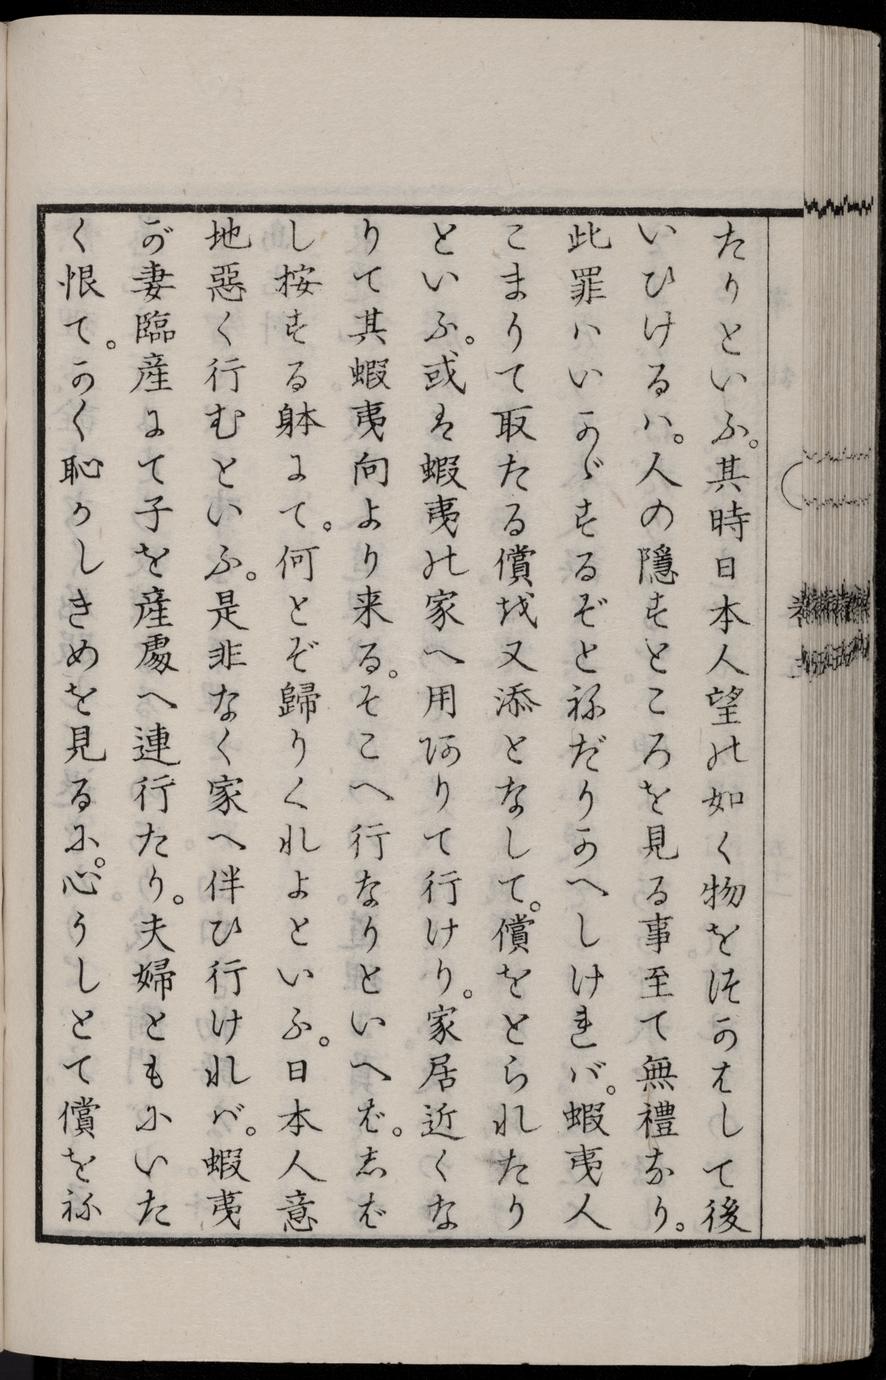 たりといふ。其時日本人望の如く物をつかはして後
いひけるハ。人の隱すところを見る事至て無禮なり。
此罪ハいかゞするぞとねだりかへしければ。蝦夷人
こまりて取たる償を又添となして。償をとられたり
といふ。或は蝦夷の家へ用ありて行けり。家居近くな
りて其蝦夷向より来る。そこへ行なりといへば。しば
し按する躰にて。何とぞ歸りくれよといふ。日本人意
地惡く行むといふ。是非なく家へ伴ひ行ければ。蝦夷
が妻臨産にて子を産處へ連行たり。夫婦ともにいた
く恨て。かく恥かしきめを見るに。心うしとて償をね